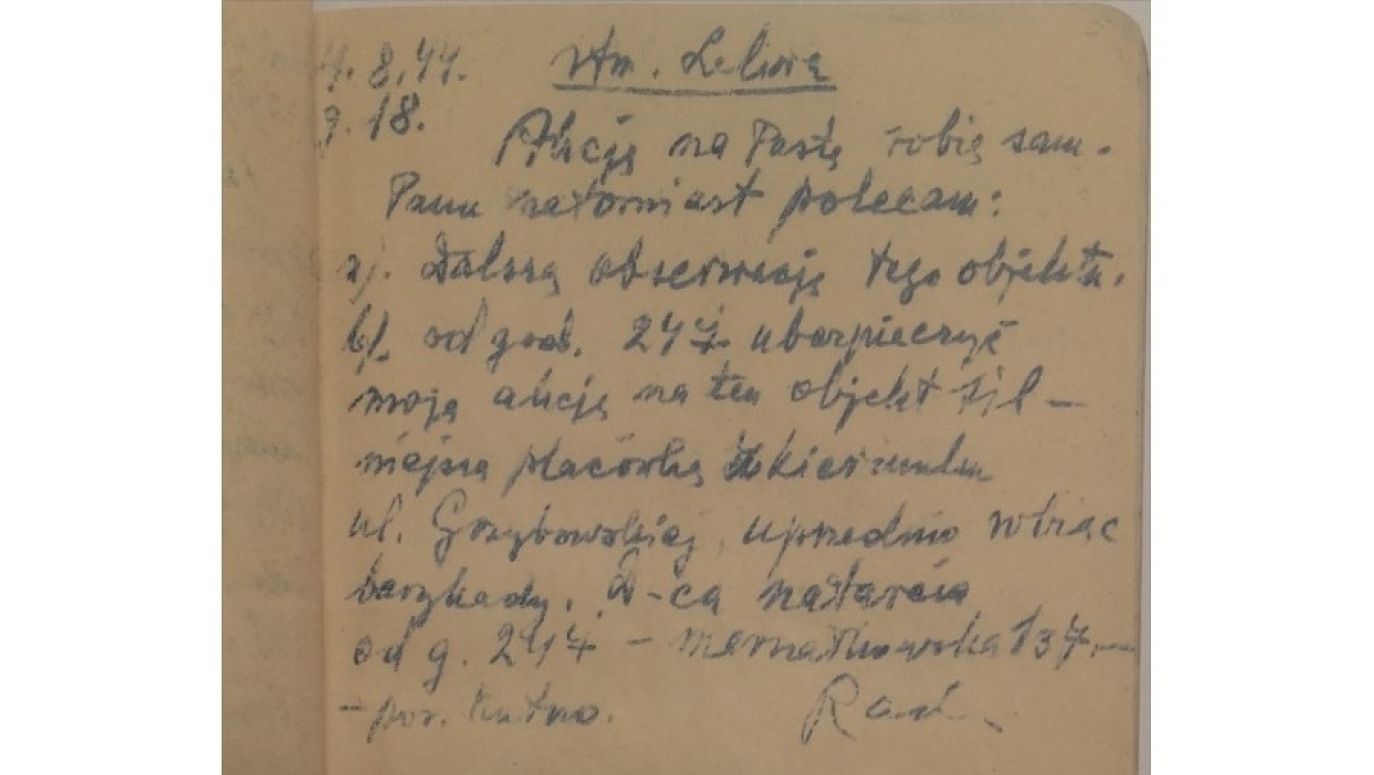 4.8.44. rtm. Leliwa
g. 18.
Akcję na Pastę robię sam.
Panu natomiast polecam:
a). Dalszą obserwację tego objektu.
b). od god. 24 ubezpieczyć
moją akcję na ten objekt sil-
niejszą placówką kierunku
ul. Grzybowskiej, uprzednio robiąc
barykady. D-ca natarcia
od g. 24 – 137.–
– por. Kutno.